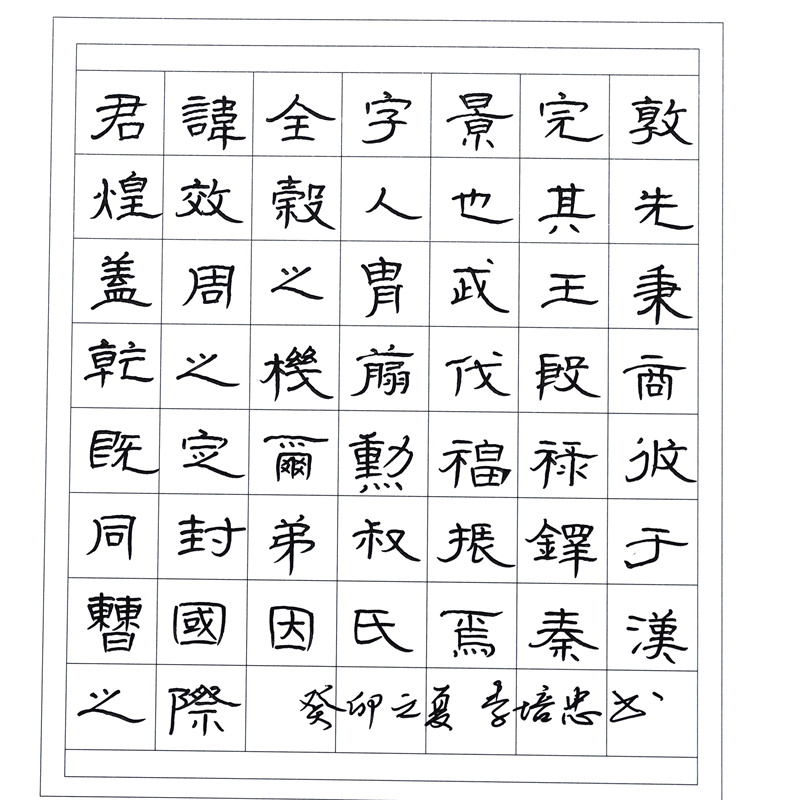 君諱全字景完敦
煌效穀人也其先
蓋周之胄武王秉
乾之機翦伐殷商
既定爾勳福祿攸
同封弟叔振鐸于
曹國因氏焉秦漢
之際 癸卯之夏 李培忠书